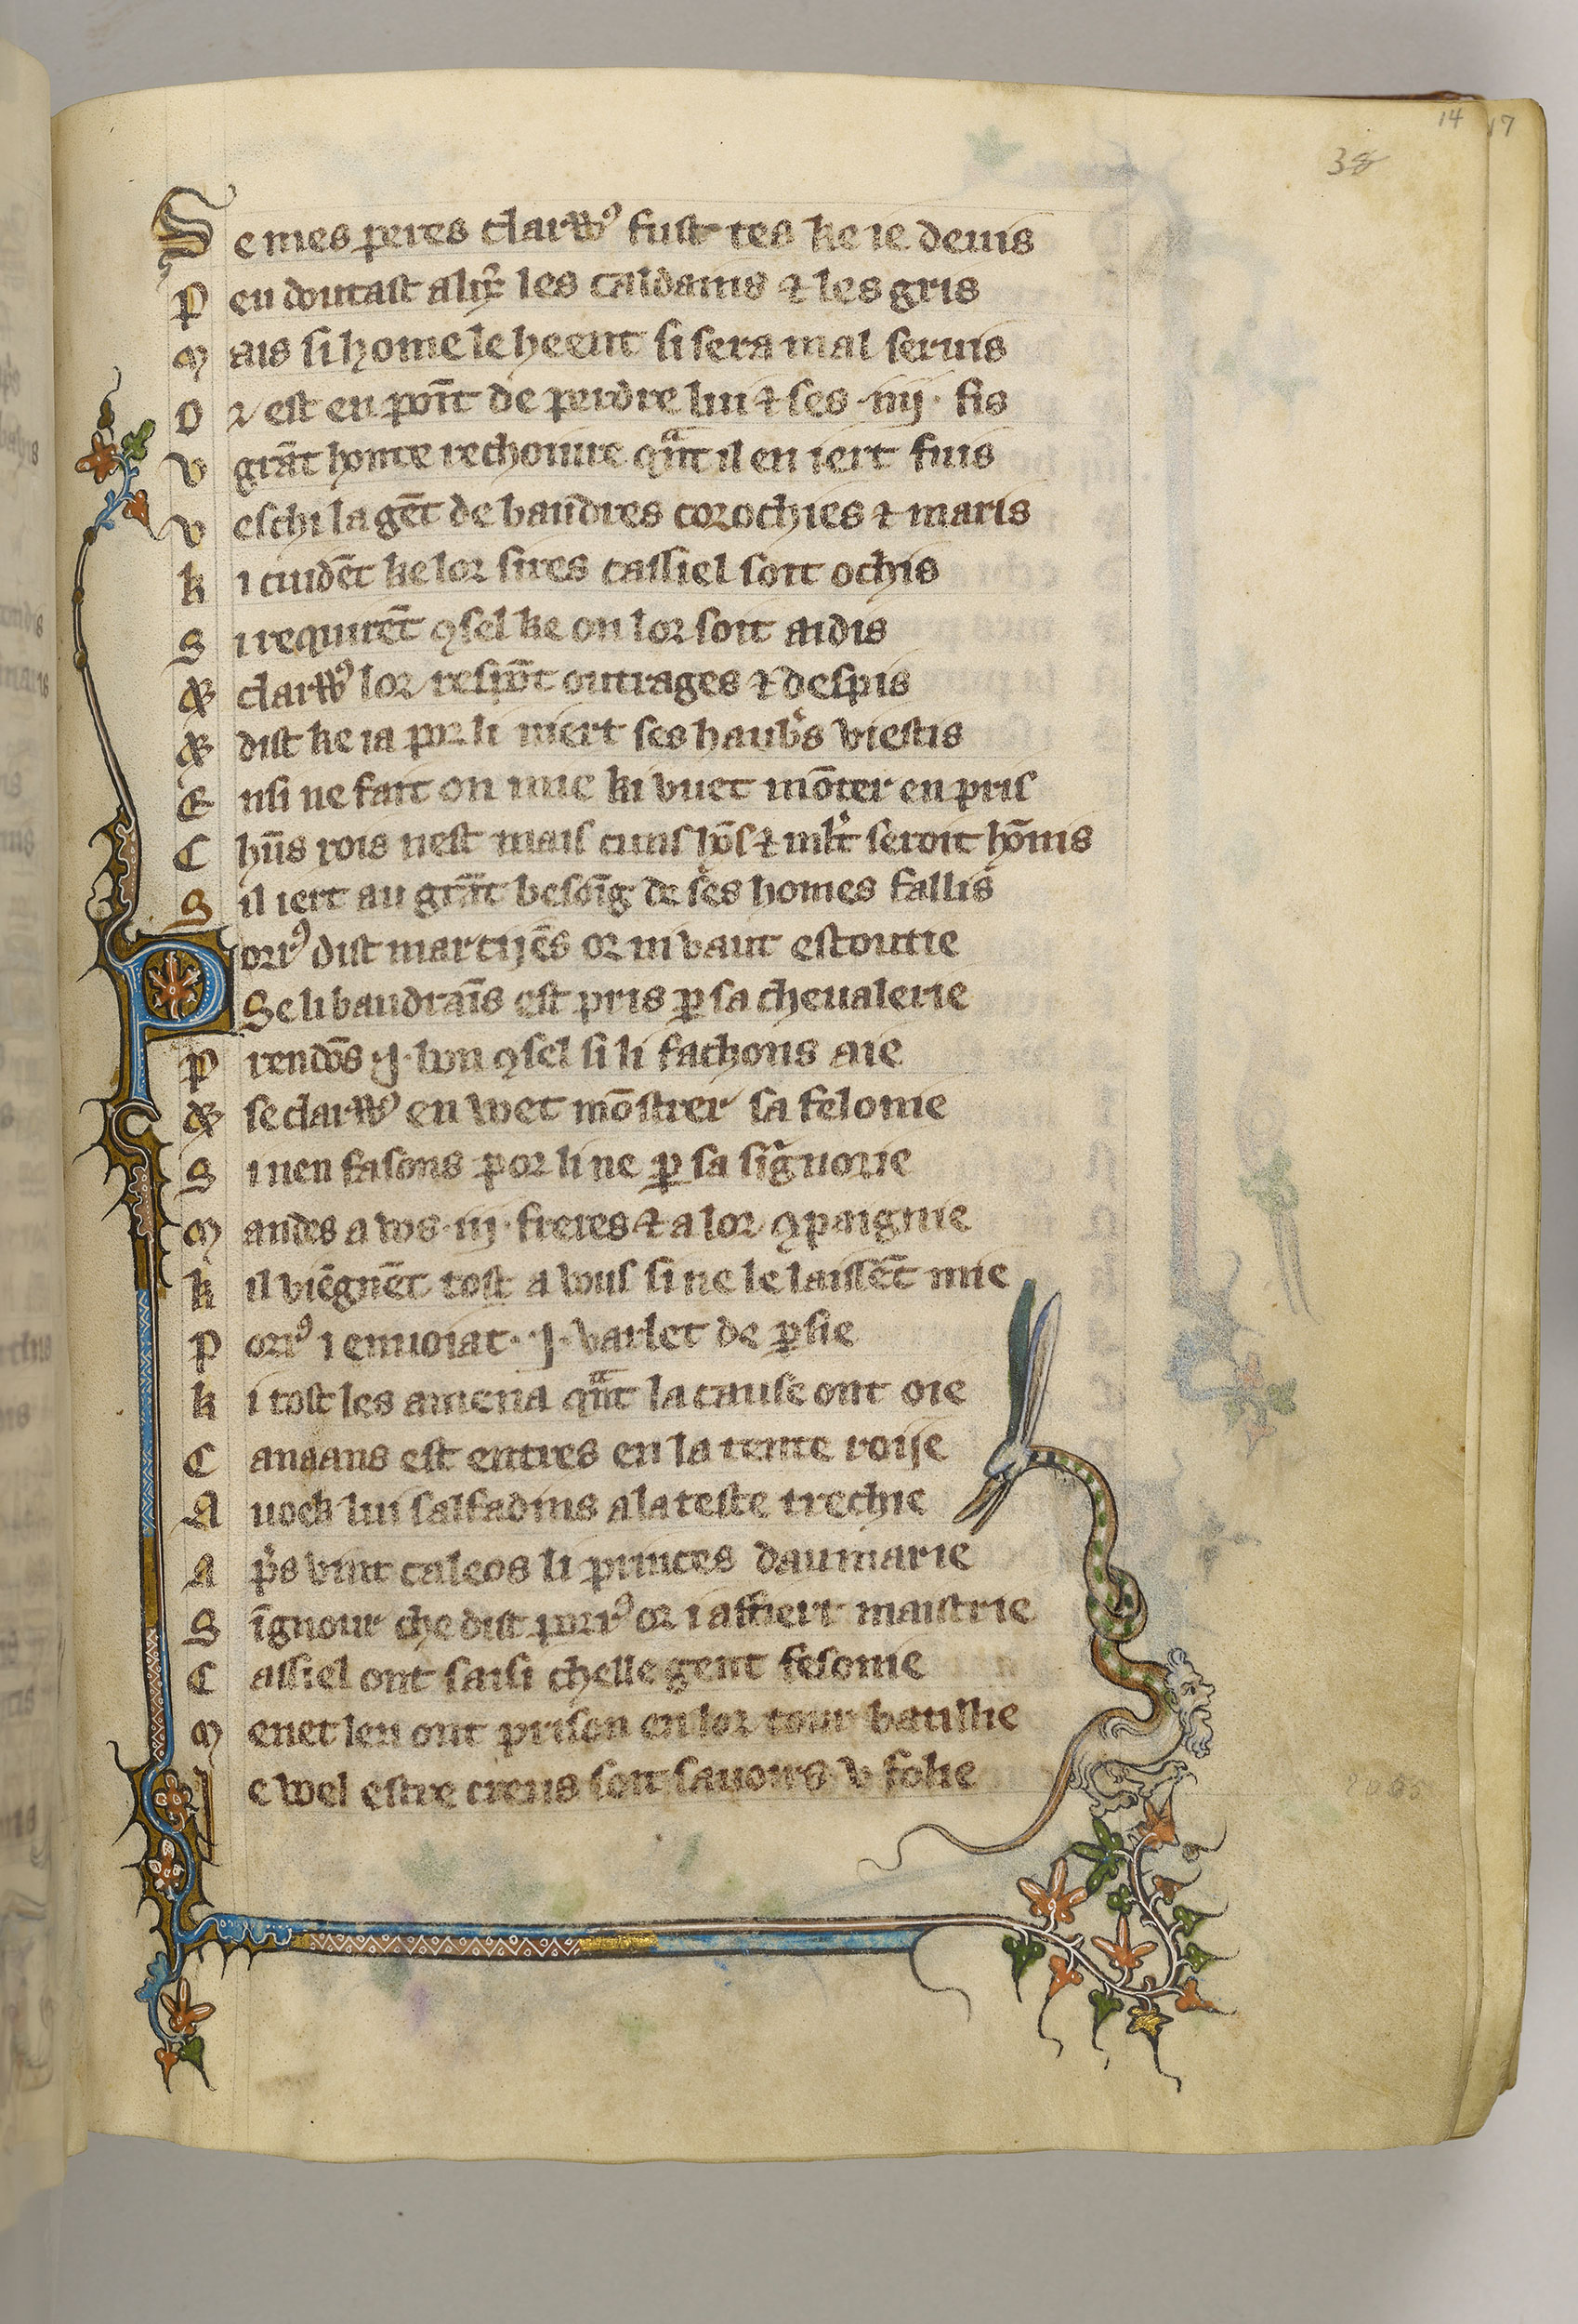 14 17
38
Se mes peres clarꝰ fust tes ke ie deuis
Peu doutast alix̃ les caldains ⁊ les gris
Mais si home le heent si sera mal seruis
Oꝛ est en point̄ de perdre lui ⁊ ses .iiij. fis
V grāt honte rechoiure qᵃnt il en iert fuis
Veschi la gēt de baudres coꝛochies ⁊ maris
Ki cuidēt ke loꝛ sires cassiel soit ochis
Si requirēt ꝯsel ke on loꝛ soit aidis
Et clarꝰ loꝛ respōt outrages ⁊ despis
Et dist ke ia poꝛ li niert ses haub̾s viestis
Ensi ne fait on mie ki vuet mōter en pris
Chūs rois nest mais cuns hōs ⁊ ml̾t seroit hōnis
Sil iert au grāt besoīg de ses homes fallis
Poꝛrꝰ dist martijēs oꝛ ni vaut estoutie
Se li baudraīs est pris ꝑ sa cheualerie
Prendōs .j. bon ꝯsel si li fachons aie
Et se clarꝰ en wet mōstrer sa felonie
Si nen fasons poꝛ li ne ꝑ sa signoꝛie
Mandes a vos .iij. freres ⁊ a loꝛ ꝯpaignie
Kil viēgnēt tost a vous si ne le laissēt mie
Poꝛrꝰ i enuoiat .j. varlet de ꝑsie
Ki tost les amena qᵃnt la cause ont oie
Canaans est entres en la tente roije
Auoek lui salfadins a la teste trechie
Ap̾s vint caleos li princes daumarie
Sīgnour che dist poꝛrꝰ oꝛ i affiert maistrie
Cassiel ont saisi chelle gent fesonie
Menet len ont prison en loꝛ tour batillie
Je wel estre creus soit sauoirs v folie